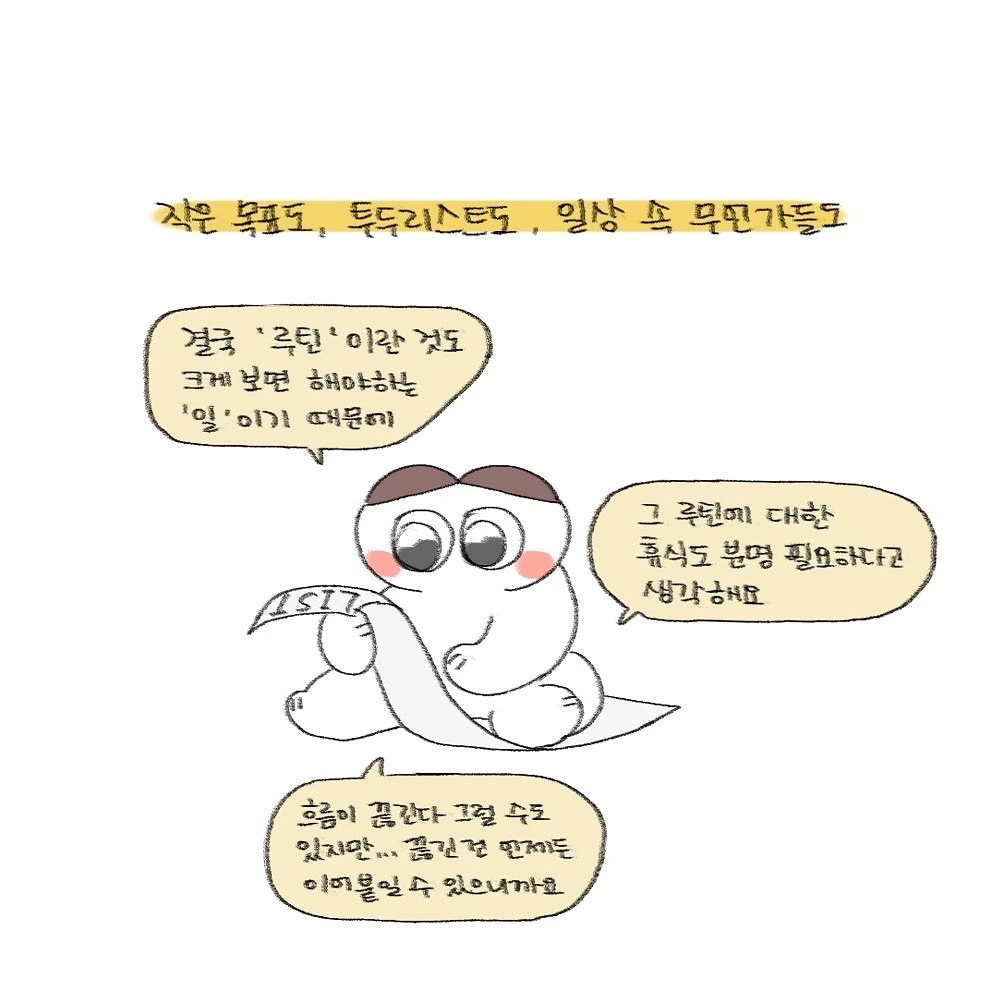 작은 목표도, 투두리스트도, 일상 속 무언가들도
결국 '루틴'이란 것도
크게 보면 해야하는
'일'이기 때문에
그 루틴에 대한
휴식도 분명 필요하다고
생각해요
LIST
흐름이 끊긴다 그럴 수도
있지만... 끊긴건 언제든
이어붙일 수 있으니까요